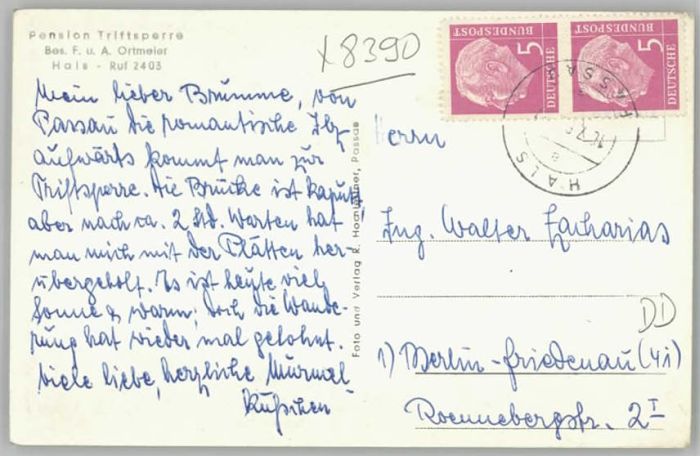 Pension Triftsperre
Bes. F. u. A. Ortmeier
Hals - Ruf 2403
x 8390
Mein lieber Brumme, von
Passau die romantische Ilz
aufwärts kommt man zur
Triftsperre. Die Brücke ist kaputt
aber nach ca. 2 Std. Warten hat
man mich mit der Plätten her-
übergeholt. Es ist heute viel
Sonne & warm, doch die Wande-
rung hat wieder mal gelohnt.
Viele liebe, herzliche Murmel
Küßchen
Foto und Verlag R. Passau
5 DEUTSCHE BUNDESPOST
5 DEUTSCHE BUNDESPOST
HALS
Herrn
Ing. Walter Zacharias
DD
1) Berlin-Friedenau (41)
Roennebergstr. 2 I